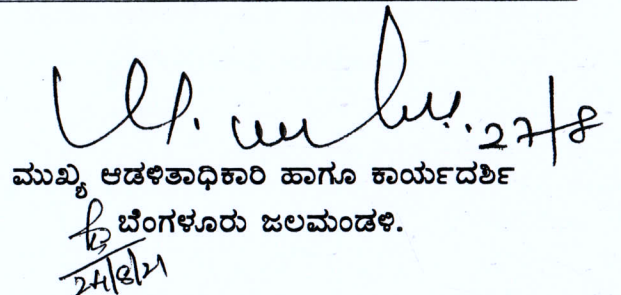 27/8
ಮುಖ್ಯ ಆಡಳಿತಾಧಿಕಾರಿ ಹಾಗೂ ಕಾರ್ಯದರ್ಶಿ
ಬೆಂಗಳೂರು ಜಲಮಂಡಳಿ.
24/8/21